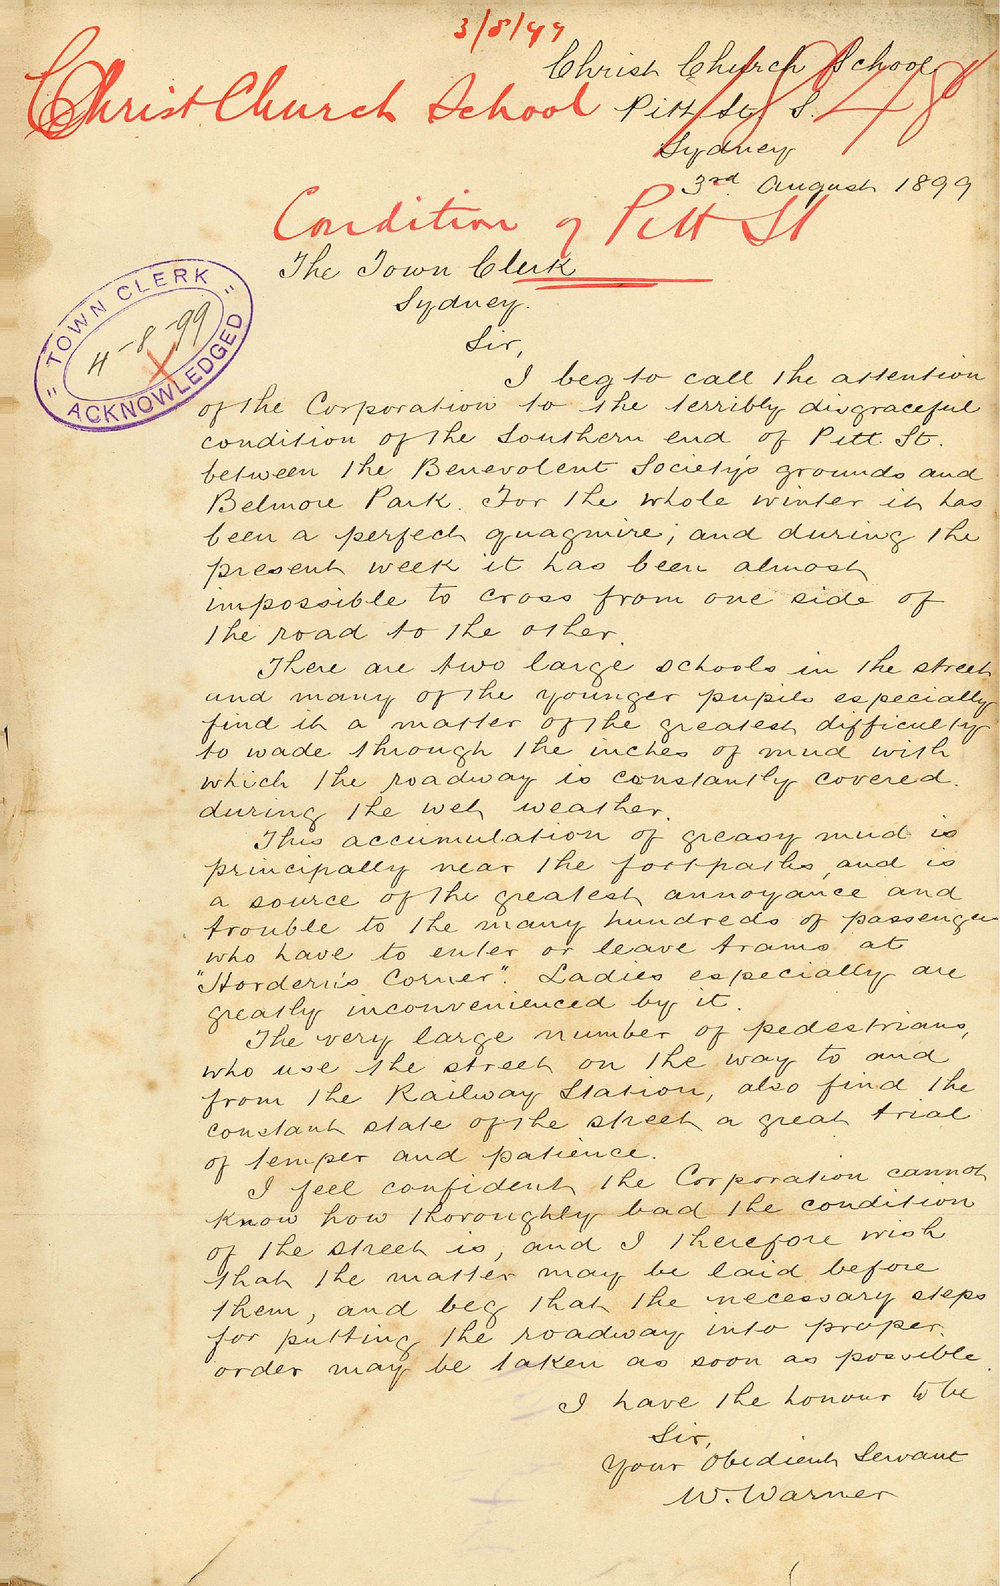 3/8/99
Christ Church School
Christ Church School
Pitt St S.
1848
Sydney
3rd August 1899
Condition of Pitt St
The Town Clerk
Sydney.
Sir,
"TOWN CLERK"
4-8-99
ACKNOWLEDGED
I beg to call the attention
of the Corporation to the terribly disgraceful
condition of the Southern end of Pitt. St.
between the Benevolent Society's grounds and
Belmore Park. For the whole winter it has
been a perfect quagmire; and during the
present week it has been almost
impossible to cross from one side of
the road to the other.
There are two large schools in the street
and many of the younger pupils especially
find it a matter of the greatest difficulty
to wade through the inches of mud with
which the roadway is constantly covered.
during the wet weather.
This accumulation of greasy mud is
principally near the footpaths, and is
a source of the greatest annoyance and
trouble to the many hundreds of passengers
who have to enter or leave trams at
"Hordern's Corner". Ladies especially are
greatly inconvenienced by it.
The very large number of pedestrians,
who use the street on the way to and
from the Railway Station, also find the
constant state of the street a great trial
of temper and patience.
I feel confident the Corporation cannot
know how thoroughly bad the condition
of the street is, and I therefore wish
that the matter may be laid before
them, and beg that the necessary steps
for putting the roadway into proper.
order may be taken as soon as possible.
I have the honour to be
Sir,
Your Obedient Servant
W. Warner